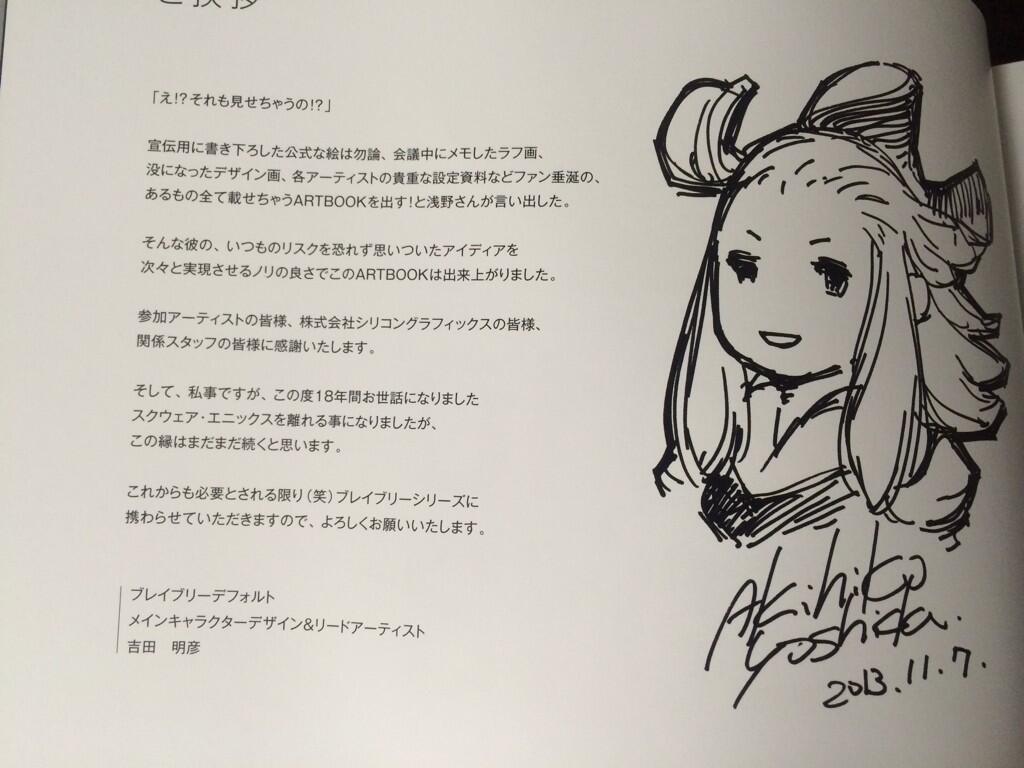 ご挨拶
「え!?それも見せちゃうの!?」
宣伝用に書き下ろした公式な絵は勿論、会議中にメモしたラフ画、
没になったデザイン画、各アーティストの貴重な設定資料などファン垂涎の、
あるもの全て載せちゃうARTBOOKを出す!と浅野さんが言い出した。
そんな彼の、いつものリスクを恐れず思いついたアイディアを
次々と実現させるノリの良さでこのARTBOOKは出来上がりました。
参加アーティストの皆様、株式会社シリコングラフィックスの皆様、
関係スタッフの皆様に感謝いたします。
そして、私事ですが、この度18年間お世話になりました
スクウェア・エニックスを離れる事になりましたが、
この縁はまだまだ続くと思います。
これからも必要とされる限り(笑)ブレイブリーシリーズに
携わらせていただきますので、よろしくお願いいたします。
ブレイブリーデフォルト
メインキャラクターデザイン&リードアーティスト
吉田 明彦
Akihiko
Yoshida.
2013.11.7.